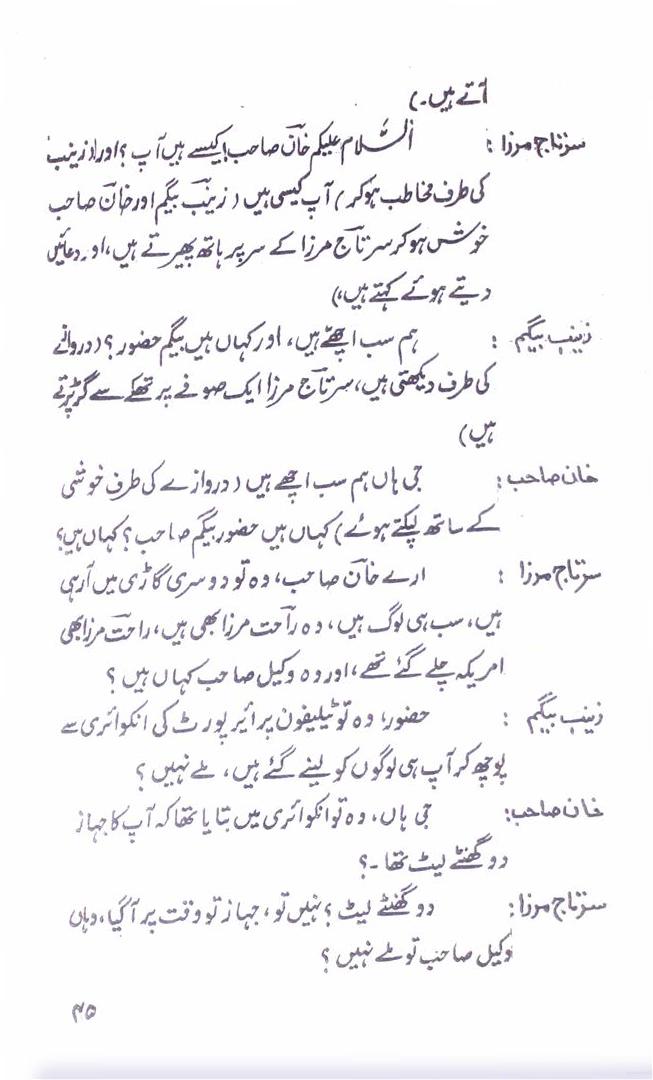 آتے ہیں۔)
سرتاج مرزا : السّلام علیکم خان صاحب! کیسے ہیں آپ ؟ اور (زینب
کی طرف مخاطب ہوکر) آپ کیسی ہیں (زینب بیگم اور خان صاحب
خوش ہوکر سرتاج مرزا کے سر پر ہاتھ پھیرتے ہیں، اور دعائیں
دیتے ہوئے کہتے ہیں،)
زینب بیگم : ہم سب اچھے ہیں، اور کہاں ہیں بیگم حضور ؟ (دروازے
کی طرف دیکھتی ہیں، سرتاج مرزا ایک صوفے پر تھکے سے گر پڑتے
ہیں)
خان صاحب : جی ہاں ہم سب اچھے ہیں (دروازے کی طرف خوشی
کے ساتھ لپکتے ہوئے) کہاں ہیں حضور بیگم صاحب ؟ کہاں ہیں؟
سرتاج مرزا : ارے خان صاحب، وہ تو دوسری گاڑی میں آرہی
ہیں، سب ہی لوگ ہیں، وہ راحت مرزا بھی ہیں، راحت مرزا بھی
امریکہ چلے گئے تھے، اور وہ وکیل صاحب کہاں ہیں ؟
زینب بیگم : حضور، وہ تو ٹیلیفون پر ائیرپورٹ کی انکوائری سے
پوچھ کر آپ ہی لوگوں کو لینے گئے ہیں، ملے نہیں ؟
خان صاحب: جی ہاں، وہ تو انکوائری میں بتایا تھا کہ آپ کا جہاز
دو گھنٹے لیٹ تھا ۔؟
سرتاج مرزا: دو گھنٹے لیٹ ؟ نہیں تو، جہاز تو وقت پر آگیا، وہاں
وکیل صاحب تو ملے نہیں ؟
۴۵